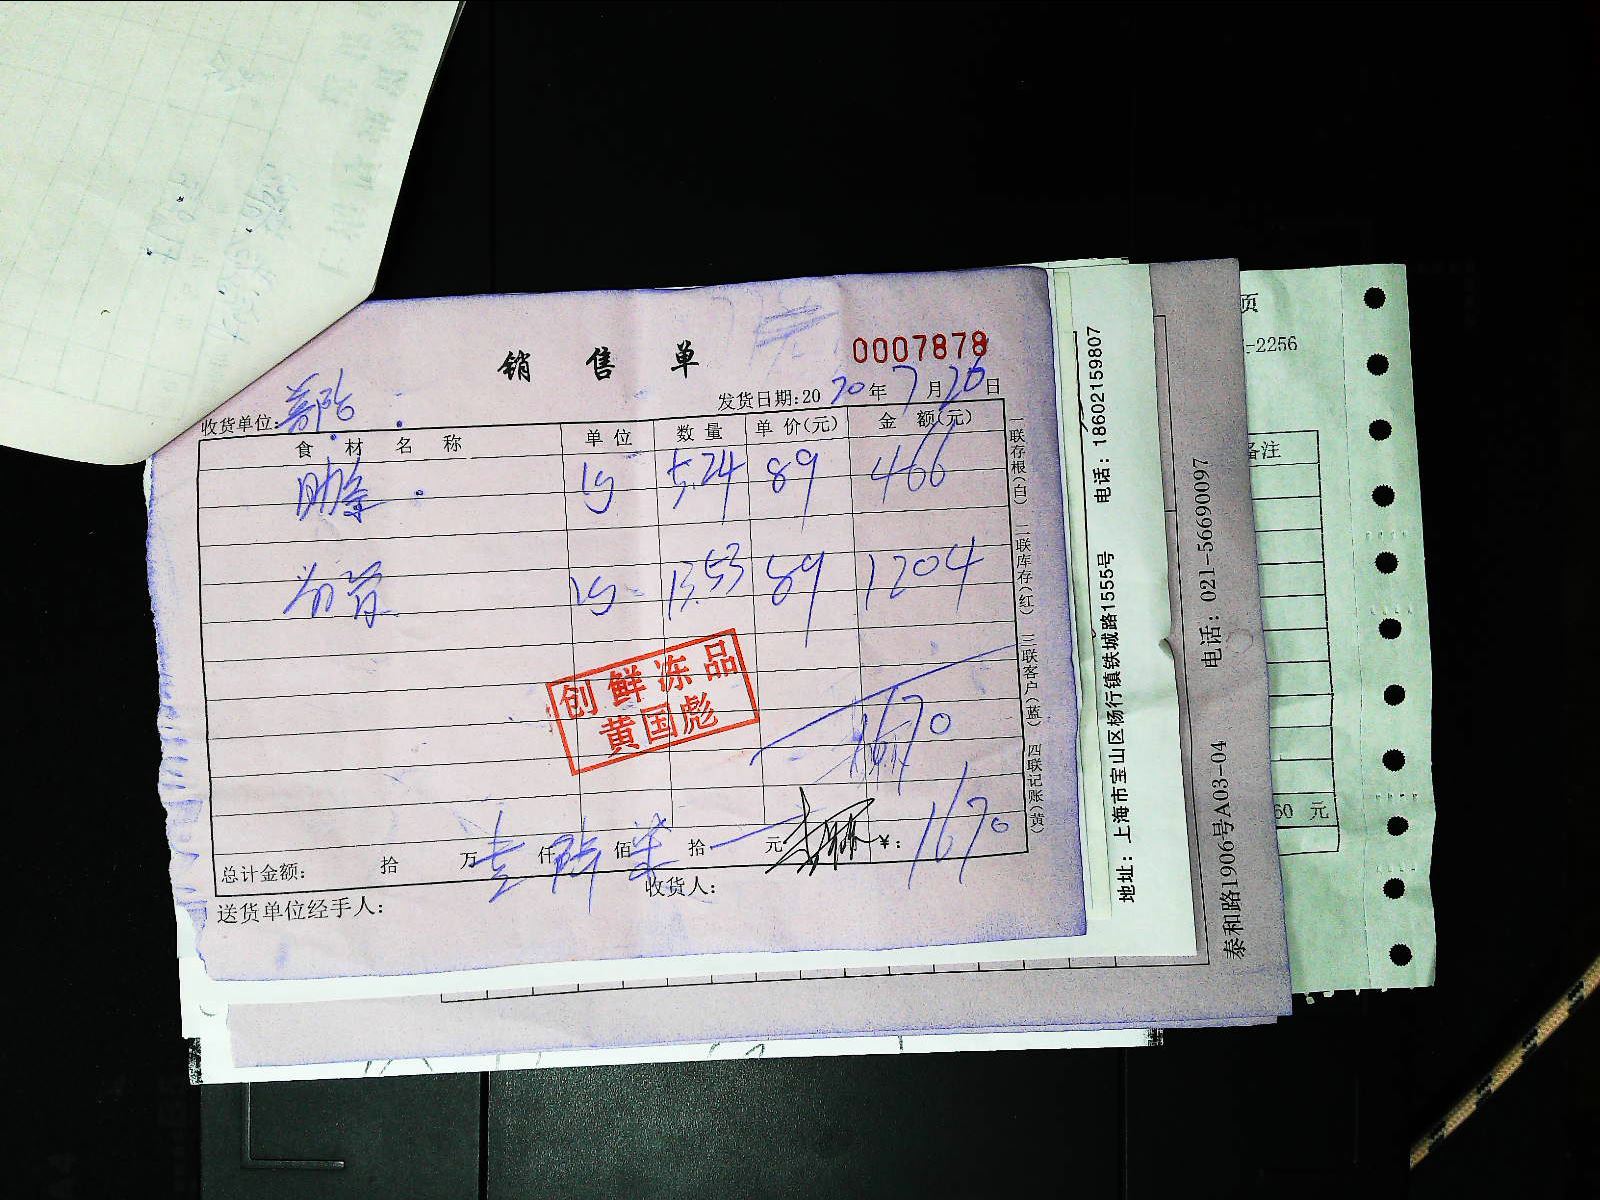 销售单
0007878
收货单位:
发货日期:2020年7月26日
食材名称 单位 数量 单价(元) 金额(元)
肋条 kg 5.24 89 466
kg 13.53 89 1204
创鲜冻品
黄国彪
1670
总计金额: 拾 万 壹 仟 陆 佰 柒 拾 元 ¥: 1670
送货单位经手人: 收货人:
一联存根(白) 二联库存(红) 三联客户(蓝) 四联记账(黄)
地址:上海市宝山区杨行镇铁城路1555号 电话:18602159807
泰和路1906号A03-04 电话:021-56690097
页
-2256
备注
60 元